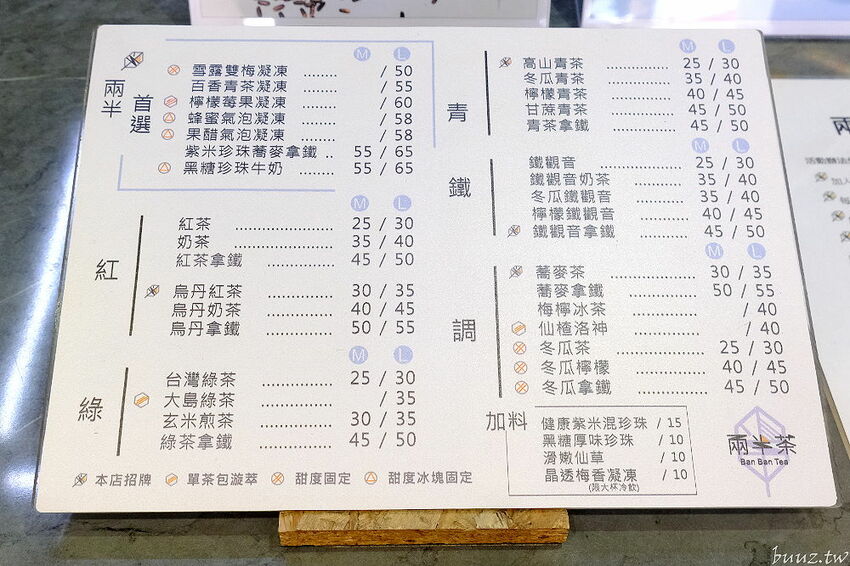 兩半首選
M L
雪露雙梅凝凍 ........ / 50
百香青茶凝凍 ........ / 55
檸檬莓果凝凍 ........ / 60
蜂蜜氣泡凝凍 ........ / 58
果醋氣泡凝凍 ........ / 58
紫米珍珠蕎麥拿鐵 .. 55 / 65
黑糖珍珠牛奶 ........ 55 / 65
紅
M L
紅茶 ................ 25 / 30
奶茶 ................ 35 / 40
紅茶拿鐵 ............ 45 / 50
烏丹紅茶 ............ 30 / 35
烏丹奶茶 ............ 40 / 45
烏丹拿鐵 ............ 50 / 55
綠
M L
台灣綠茶 ............ 25 / 30
大島綠茶 ............ / 35
玄米煎茶 ............ 30 / 35
綠茶拿鐵 ............ 45 / 50
本店招牌 單茶包漩萃 甜度固定 甜度冰塊固定
青
M L
高山青茶 ............ 25 / 30
冬瓜青茶 ............ 35 / 40
檸檬青茶 ............ 40 / 45
甘蔗青茶 ............ 45 / 50
青茶拿鐵 ............ 45 / 50
鐵
M L
鐵觀音 .............. 25 / 30
鐵觀音奶茶 .......... 35 / 40
冬瓜鐵觀音 .......... 35 / 40
檸檬鐵觀音 .......... 40 / 45
鐵觀音拿鐵 .......... 45 / 50
調
M L
蕎麥茶 .............. 30 / 35
蕎麥拿鐵 ............ 50 / 55
梅檸冰茶 ............ / 40
仙楂洛神 ............ / 40
冬瓜茶 .............. 25 / 30
冬瓜檸檬 ............ 40 / 45
冬瓜拿鐵 ............ 45 / 50
加料
健康紫米混珍珠 / 15
黑糖厚味珍珠 / 10
滑嫩仙草 ........ / 10
晶透梅香凝凍 / 10
(限大杯冷飲)
兩半茶
Ban Ban Tea
buuz.tw